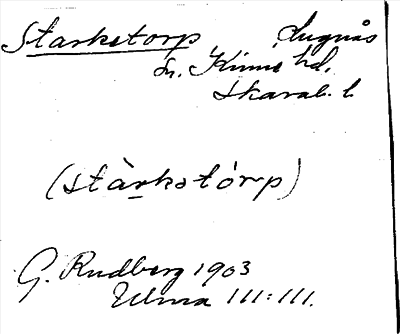 Starketorp Lugnås
sn. Kinne hd.
Skarab. l.
(stàrkɘtórp)
G. Rudberg 1903
Ulma 111:111.